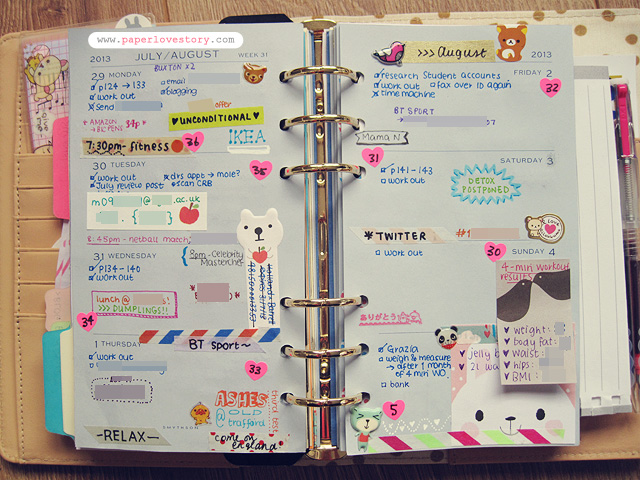 www.paperlovestory.com
JULY/AUGUST
WEEK 31
BUXTON x2
29 MONDAY
p124 → 133
work out
Send
email
blogging
offer
* AMAZON 34p *
→ BIC PENS
♥ UNCONDITIONAL ♥
36
7:30pm- fitness
IKEA
30 TUESDAY
35
work out
July review post
drs appt → mole?
scan CRB
m09 @ .ac.uk
. { }
8:45pm - netball match
31 WEDNESDAY
p134-140
work out
8pm - Celebrity
Masterchef
lunch@ s!
>>> DUMPLINGS!!
34
BT sport~
1 THURSDAY
work out
33
ASHES
@ OLD
trafford
third test
come on
england
-RELAX-
>>> August
2013
research student accounts
work out
fax over ID again
time machine
FRIDAY 2
32
BT SPORT
Mama N.
31
SATURDAY 3
p141-143
work out
DETOX
POSTPONED
* TWITTER
#1
30
SUNDAY 4
work out
4-min workout
results
♥ weight:
♥ body fat:
♥ waist:
♥ hips:
♥ BMI:
ありがとう
Grazia
weigh & measure
→ after 1 month
of 4 min WO
bank
♥ jelly b
♥ 21 wa
5